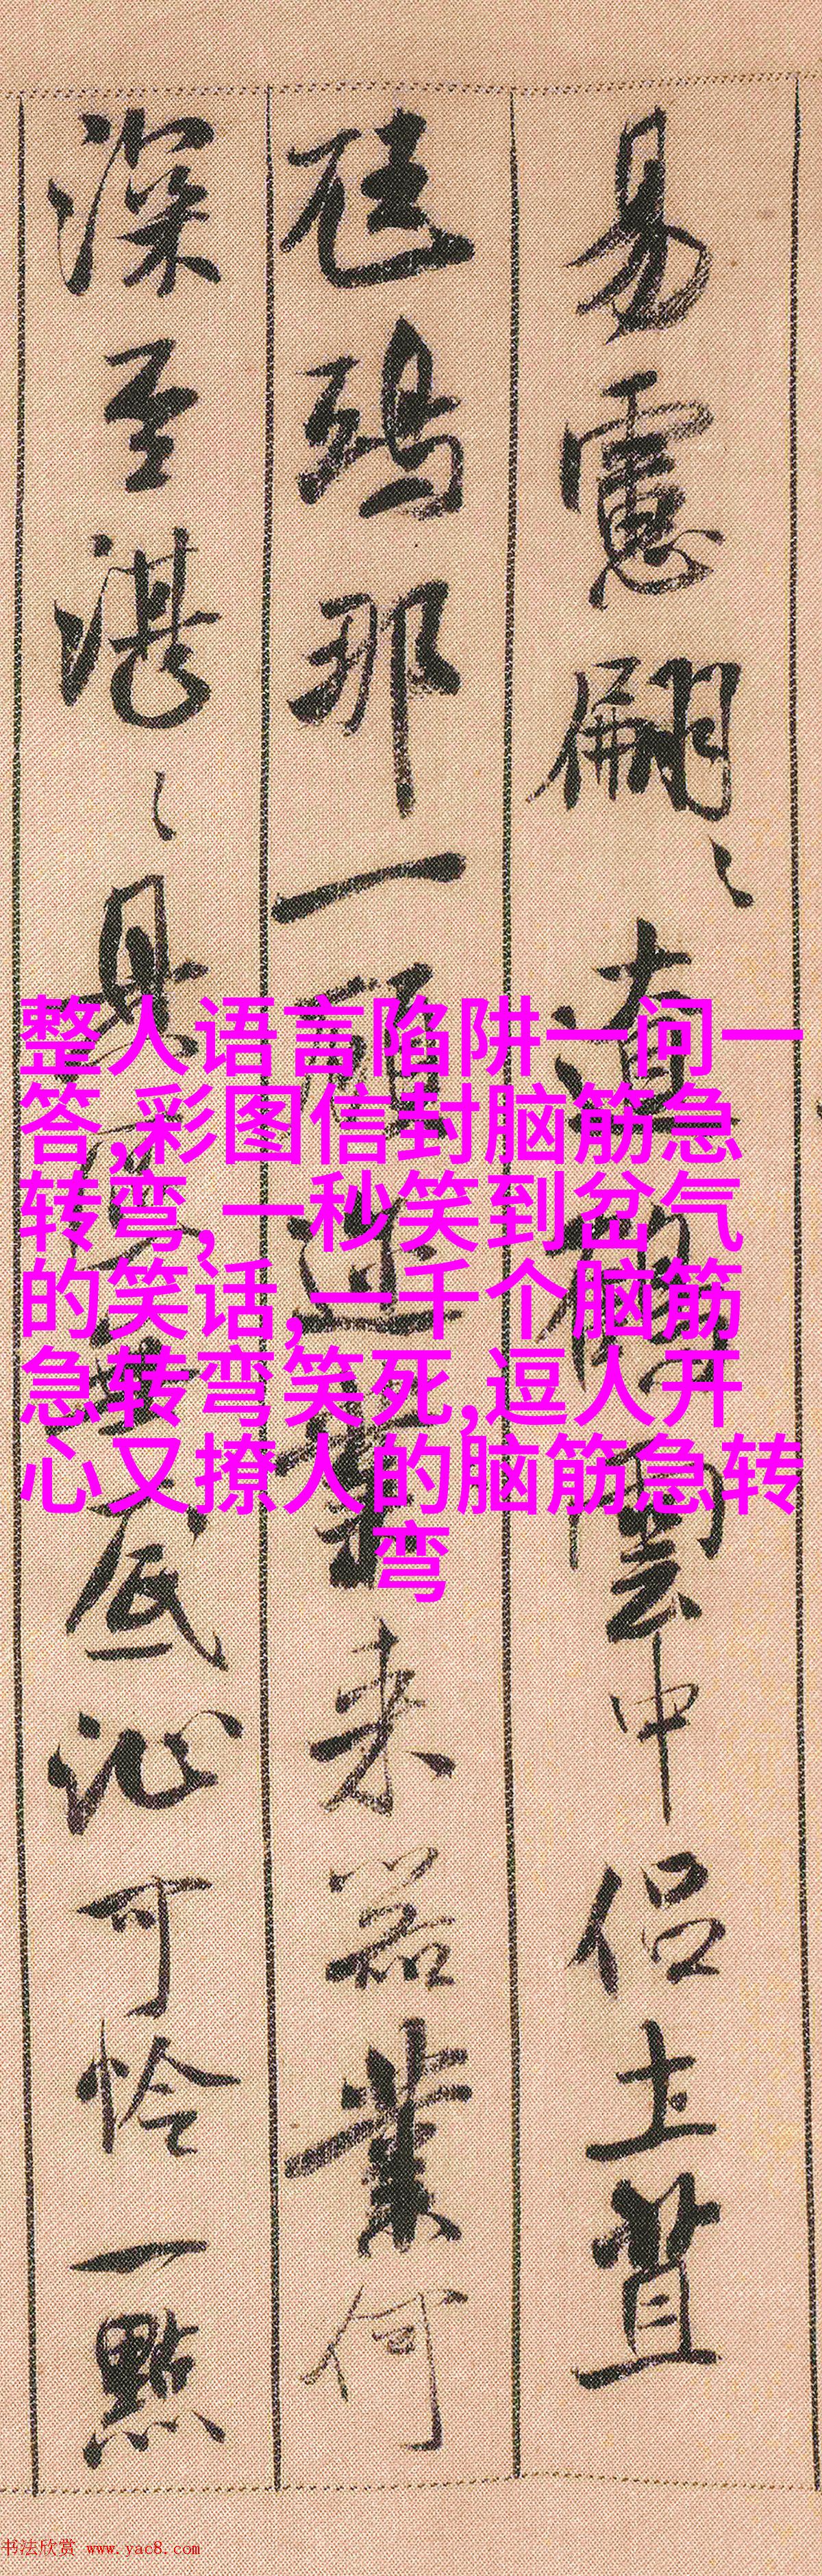 易慮翩々清㒓雲中侶土苴
砡鵄那一顧進兼来器業何
深至湛々具區無底沁可怜一點
整人语言陷阱一问一
答,彩图信封脑筋急
转弯,一秒笑到岔气
的笑话,一千个脑筋
急转弯笑死,逗人开
心又撩人的脑筋急转
弯
书法欣赏 www.yac8.com